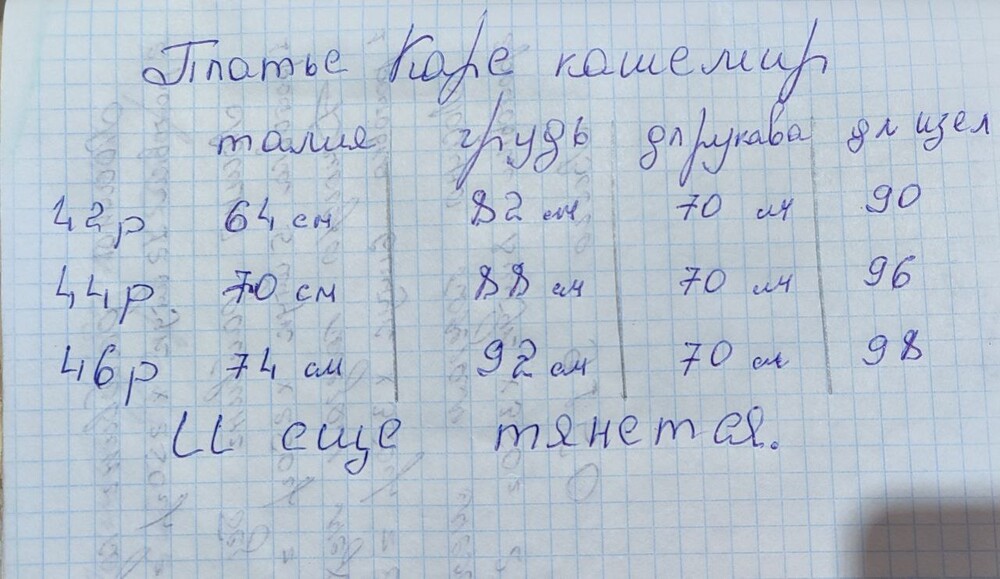 Платье Каре кашемир
талия грудь дл рукава дл изел
42р 64 см 82 см 70 см 90
44р. 70 см 88 см 70 см 96
46р 74 см 92 см 70 см 98
И еще тянется.